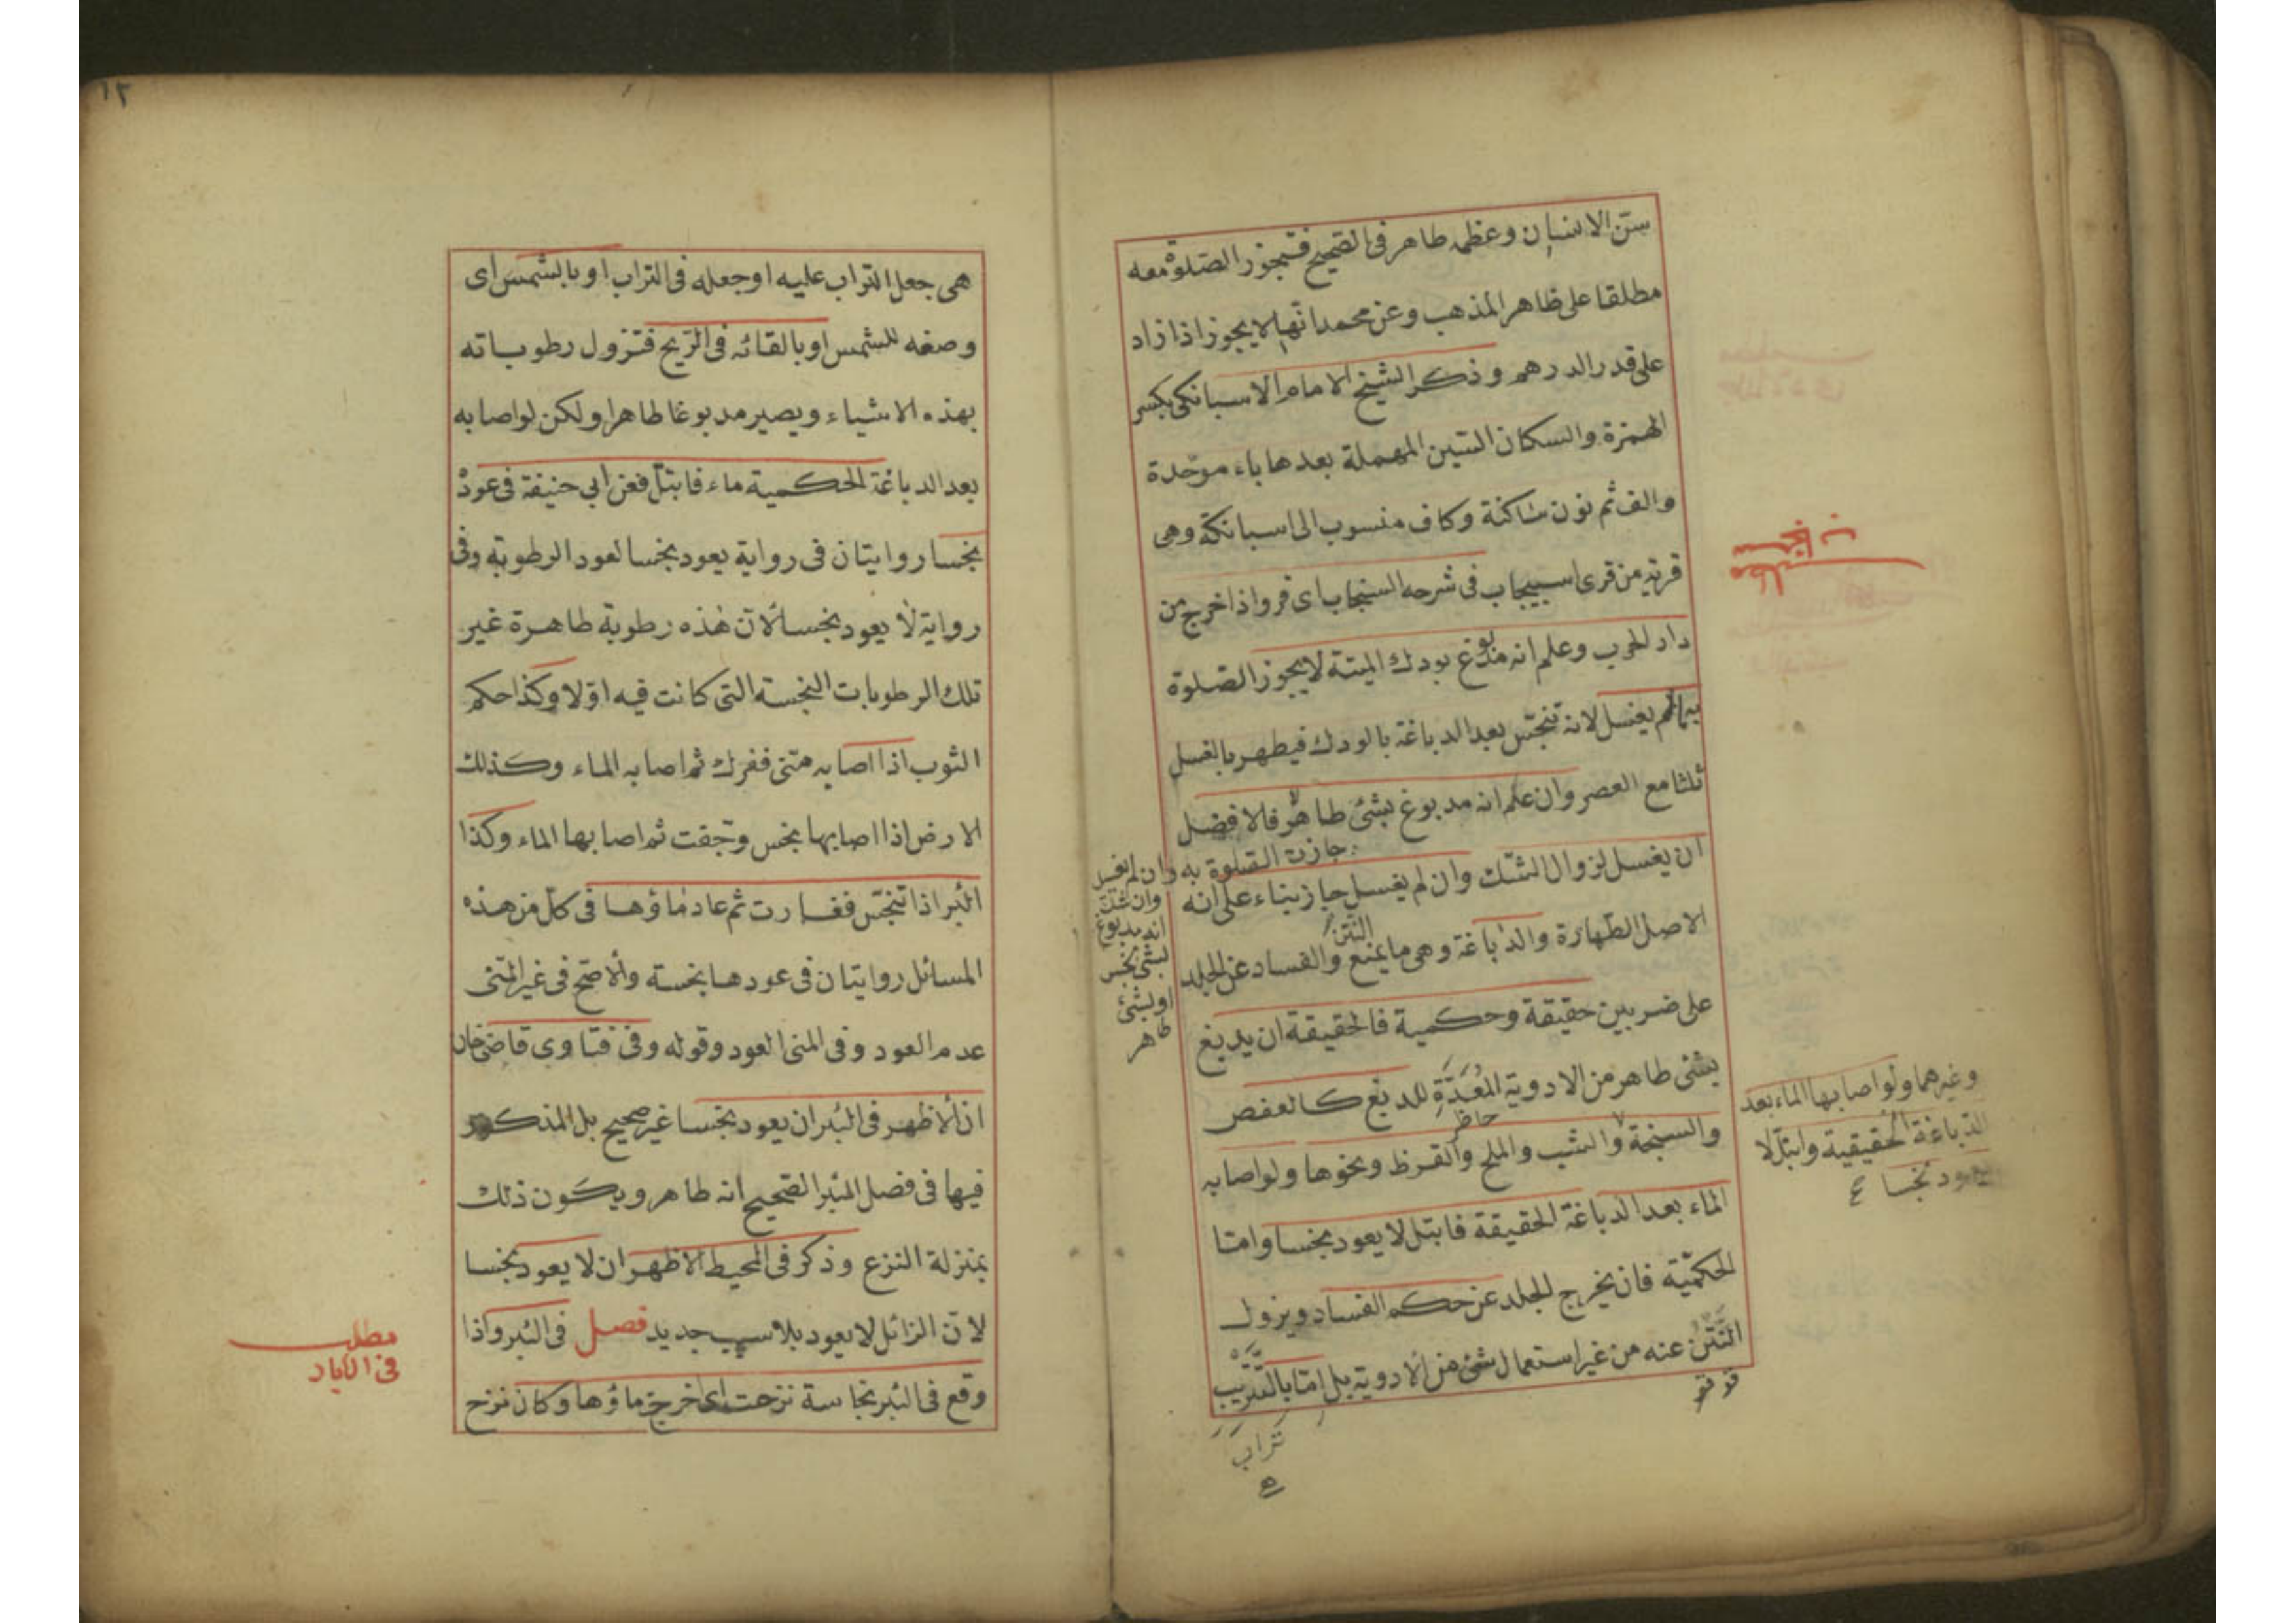 سن الانسان وعظمه طاهر فى الصحيح فتجوز الصلوة معه
مطلقا على ظاهر المذهب وعن محمد انها لا يجوز اذا زاد
على قدر الدرهم وذكر الشيخ الامام الاسبانكى بكسر
الهمزة والسكان السين المهملة بعدها باء موحدة
والف ثم نون ساكنة وكاف منسوب الى اسبانكة وهى
قرية من قرى اسبيجاب فى شرحه السنجاب اى فرو اذا اخرج من
دار الحرب وعلم انه مدبوغ بودك الميتة لا يجوز الصلوة
بها لم يغسل لانه تنجس بعد الدباغة بالودك فيطهر بالغسل
ثلثا مع العصر وان علم انه مدبوغ بشئ طاهر فالافضل
ان يغسل لزوال الشك وان لم يغسل جاز بناء على انه
الاصل الطهارة والدباغة وهى ما يمنع النتن والفساد عن الجلد
على ضربين حقيقة وحكمية فالحقيقة ان يدبغ
بشئ طاهر من الادوية المعدة للدبغ كالعفص
والسبخة والشب والملح والقرظ ونحوها ولو اصابه
الماء بعد الدباغة الحقيقة فابتل لا يعود نجسا واما
الحكمية فان يخرج الجلد عن حكم الفساد ويزول
النتن عنه من غير استعمال شئ من الادوية بل اما بالتتريب
جازت الصلوة به وان لم يغسل
وان شك
انه مدبوغ
بشئ نجس
او بشئ
طاهر
سنجاب
وغيرهما ولو اصابها الماء بعد
الدباغة الحقيقية وابتل لا
يعود نجسا
تراب
١٢
هى جعل التراب عليه او جعله فى التراب او بالشمس اى
وضعه للشمس او بالقائه فى الريح فتزول رطوباته
بهذه الاشياء ويصير مدبوغا طاهرا ولكن لو اصابه
بعد الدباغة الحكمية ماء فابتل فعن ابي حنيفة فى عوده
نجسا روايتان فى رواية يعود نجسا لعود الرطوبة وفى
رواية لا يعود نجسا لان هذه رطوبة طاهرة غير
تلك الرطوبات النجسة التى كانت فيه اولا وكذا حكم
الثوب اذا اصابه منى ففرك ثم اصابه الماء وكذلك
الارض اذا اصابها نجس وجفت ثم اصابها الماء وكذا
البئر اذا تنجس فغارت ثم عاد ماؤها فى كل من هذه
المسائل روايتان فى عودها نجسة والاصح فى غير المنى
عدم العود وفى المنى العود وقوله وفى فتاوى قاضى خان
ان الاظهر فى البئر ان يعود نجسا غير صحيح بل المذكور
فيها فى فصل البئر الصحيح انه طاهر ويكون ذلك
بمنزلة النزع وذكر فى المحيط الاظهر ان لا يعود نجسا
لان الزائل لا يعود بلا سبب جديد فصل فى البئر واذا
وقع فى البئر نجاسة نزحت اى اخرج ماؤها وكان نزح
مطلب
فى الابار